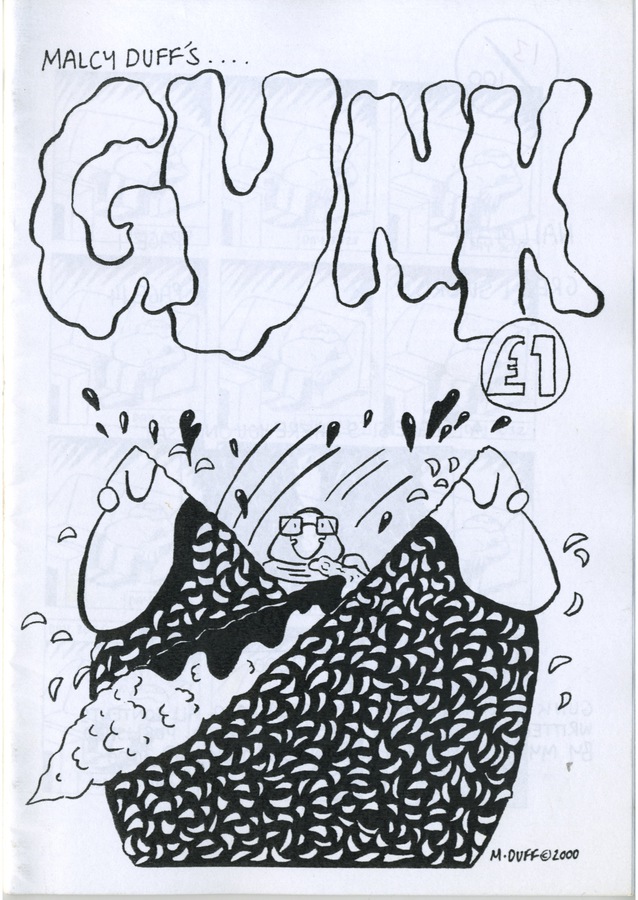 MALCY DUFF'S....
GUNK
£1
M·DUFF©2000